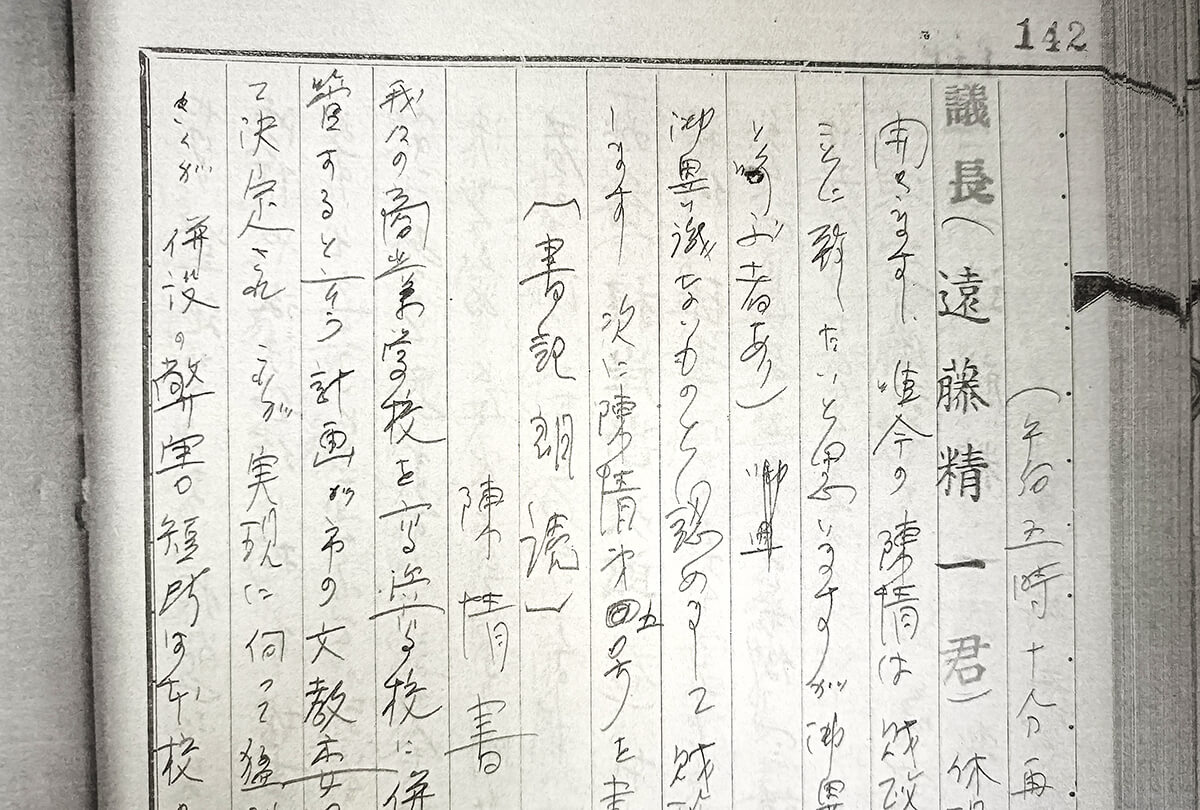 142
（午后五時十分再
議長（遠藤精一君）休
開きます、唯今の陳情は財政
ことに致したいと思いますが御異
と呼ぶ者あり）御異
御異議ないものと認めまして財
します 次に陳情第五号を
（書記朗読）
陳情書
我々の商業学校を高等学校に併
置すると言う計画が市の文教委の
て決定され、これが実現に向って猛
きくが併設の弊害短所は本校